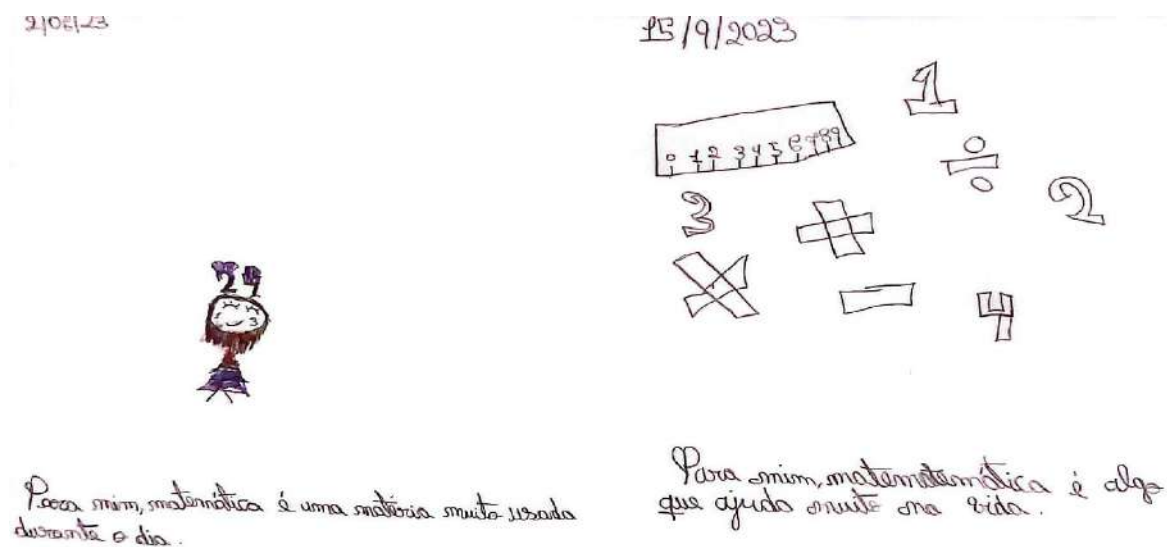 2/06/23
Para mim, matemática é uma matéria muito usada
durante o dia.
15/9/2023
1
0 1 2 3 4 5 6 7 8 9
÷
2
3
+
×
−
4
Para mim, matematemática é algo
que ajuda muito na vida.